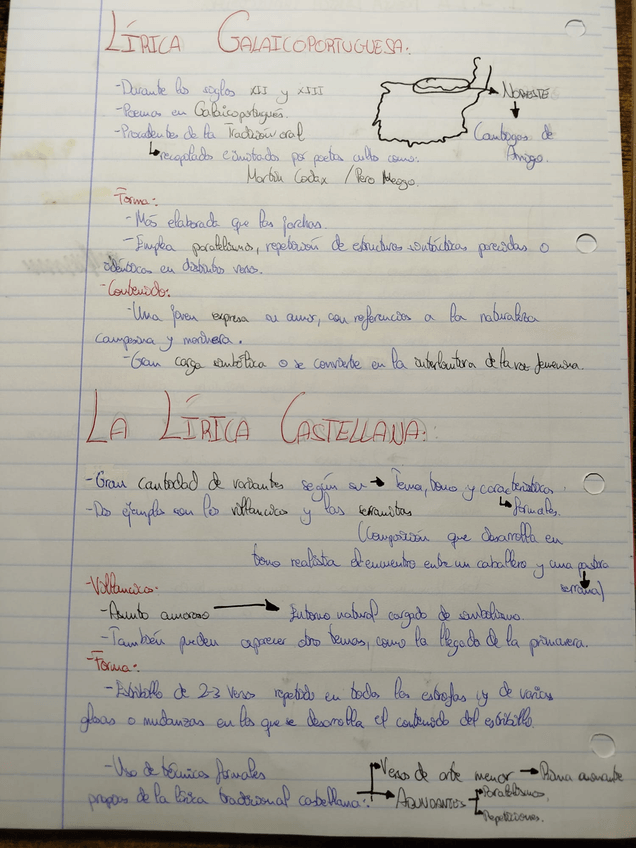 LÍRICA GALAICOPORTUGUESA:
-Durante los siglos XII y XIII
-Poemas en Galaicoportugués.
-Procedentes de la Tradición oral
recopilados e imitados por poetas culto como:
Martín Codax / Pero Meogo.
NOROESTE
Cantigas de
Amigo.
-Forma:
-Más elaborada que las jarchas.
-Emplea paralelismos, repetición de estructuras sintácticas parecidas o
idénticas en distintos versos.
-Contenido:
-Una joven expresa su amor, con referencias a la naturaleza
campesina y marinera.
-Gran carga simbólica o se convierte en la interlocutora de la voz femenina.
LA LÍRICA CASTELLANA:
-Gran cantidad de variantes según su → Tema, tono y características
formales.
-Dos ejemplo son los villancicos y las serranillas
(Composición que desarrolla en
tono realista el encuentro entre un caballero y una pastora
serrana)
-Villancico:
-Asunto amoroso → Entorno natural cargado de simbolismo.
-También pueden aparecer otro temas, como la llegada de la primavera.
-Forma:
-Estribillo de 2-3 verso repetido en todas las estrofas y de varias
glosas o mudanzas en las que se desarrolla el contenido del estribillo.
-Uso de técnicas formales
propias de la lírica tradicional castellana:
Versos de arte menor → Rima asonante
ABUNDANTES
Paralelismos,
Repeticiones.